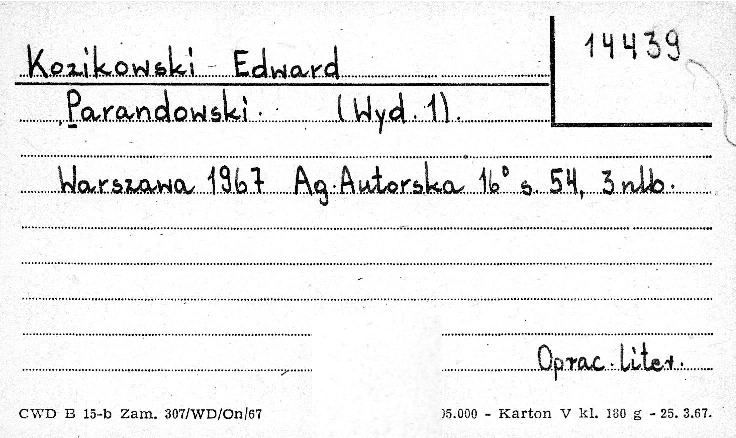 14439
Kozikowski Edward
Parandowski. (Wyd. 1).
Warszawa 1967 Ag. Autorska 16° s. 54, 3 nlb.
Oprac. liter.
CWD B 15-b Zam. 307/WD/On/67 5.000 - Karton V kl. 180 g - 25. 3.67.